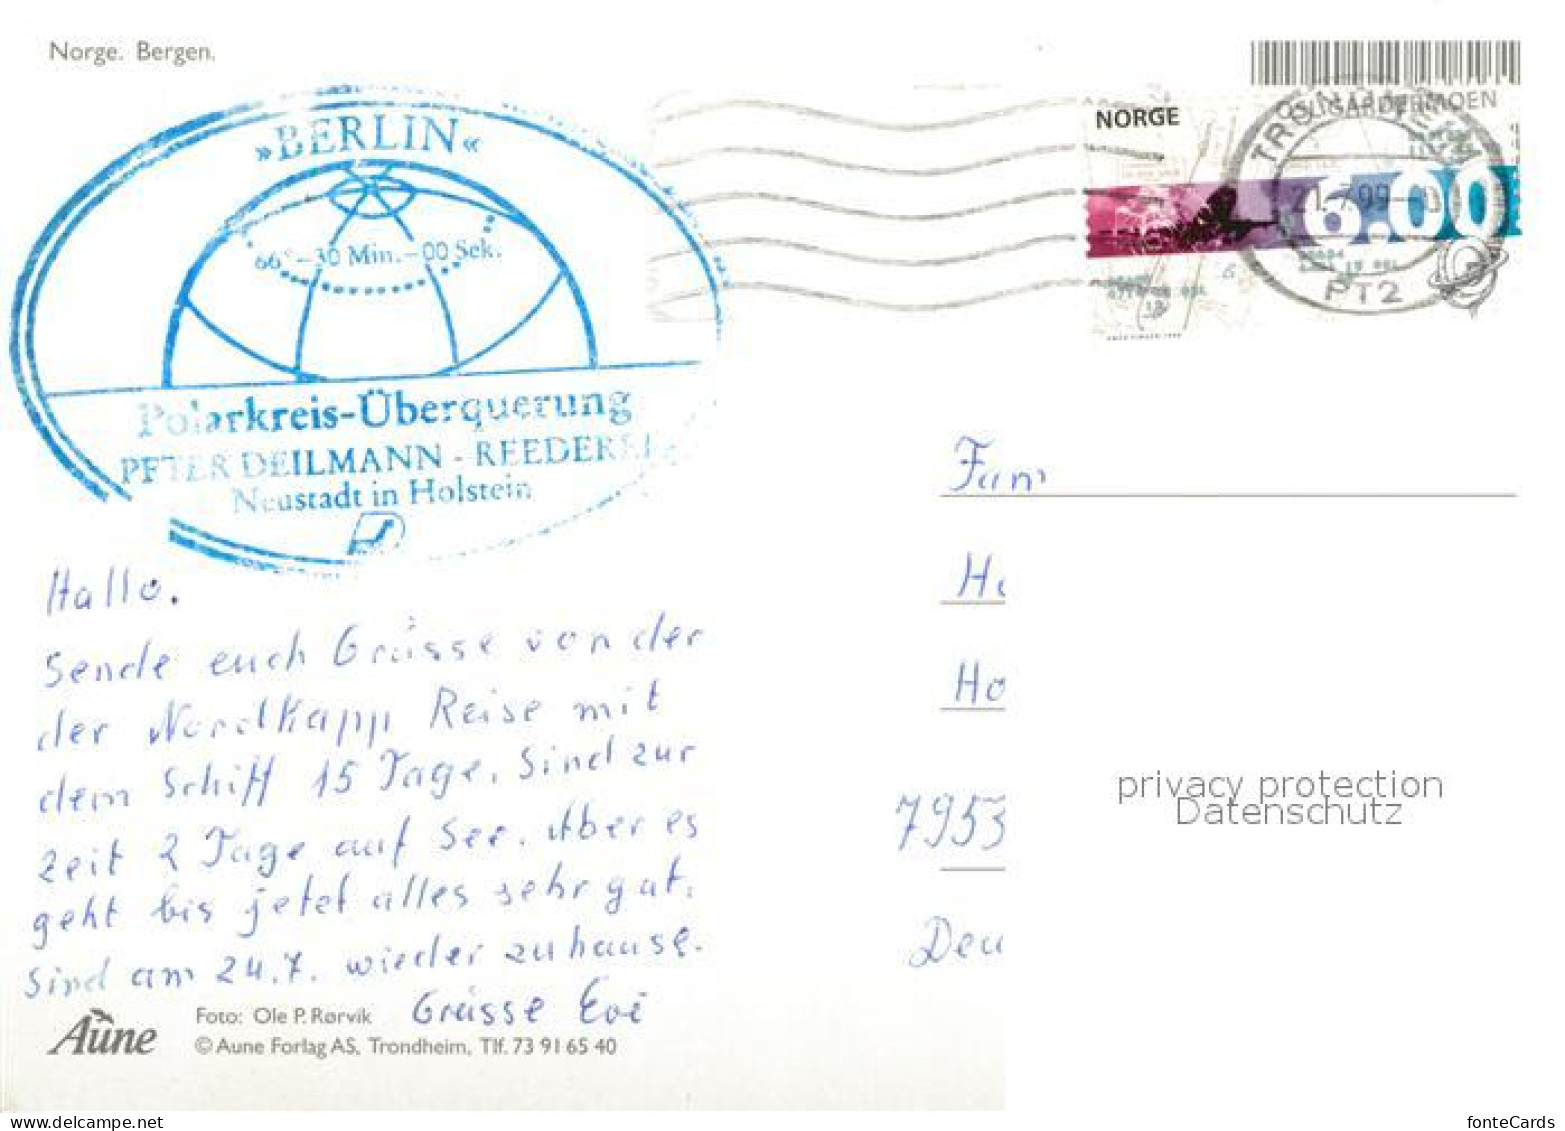 Norge. Bergen.
»BERLIN«
66°–30 Min.–00 Sek.
Polarkreis-Überquerung
PETER DEILMANN - REEDEREI
Neustadt in Holstein
NORGE
OSL/GARDERMOEN
21.7.99
6.00
PT2
Hallo.
Sende euch Grüsse von der
der Nordkapp Reise mit
dem Schiff 15 Tage. Sind zur
Zeit 2 Tage auf See. Aber es
geht bis jetet alles sehr gut.
Sind am 24.7. wieder zuhause.
Grüsse Evi
Fam
Ho
7953
Deu
privacy protection
Datenschutz
Aune
Foto: Ole P. Rørvik
© Aune Forlag AS, Trondheim, Tlf. 73 91 65 40
fonteCards